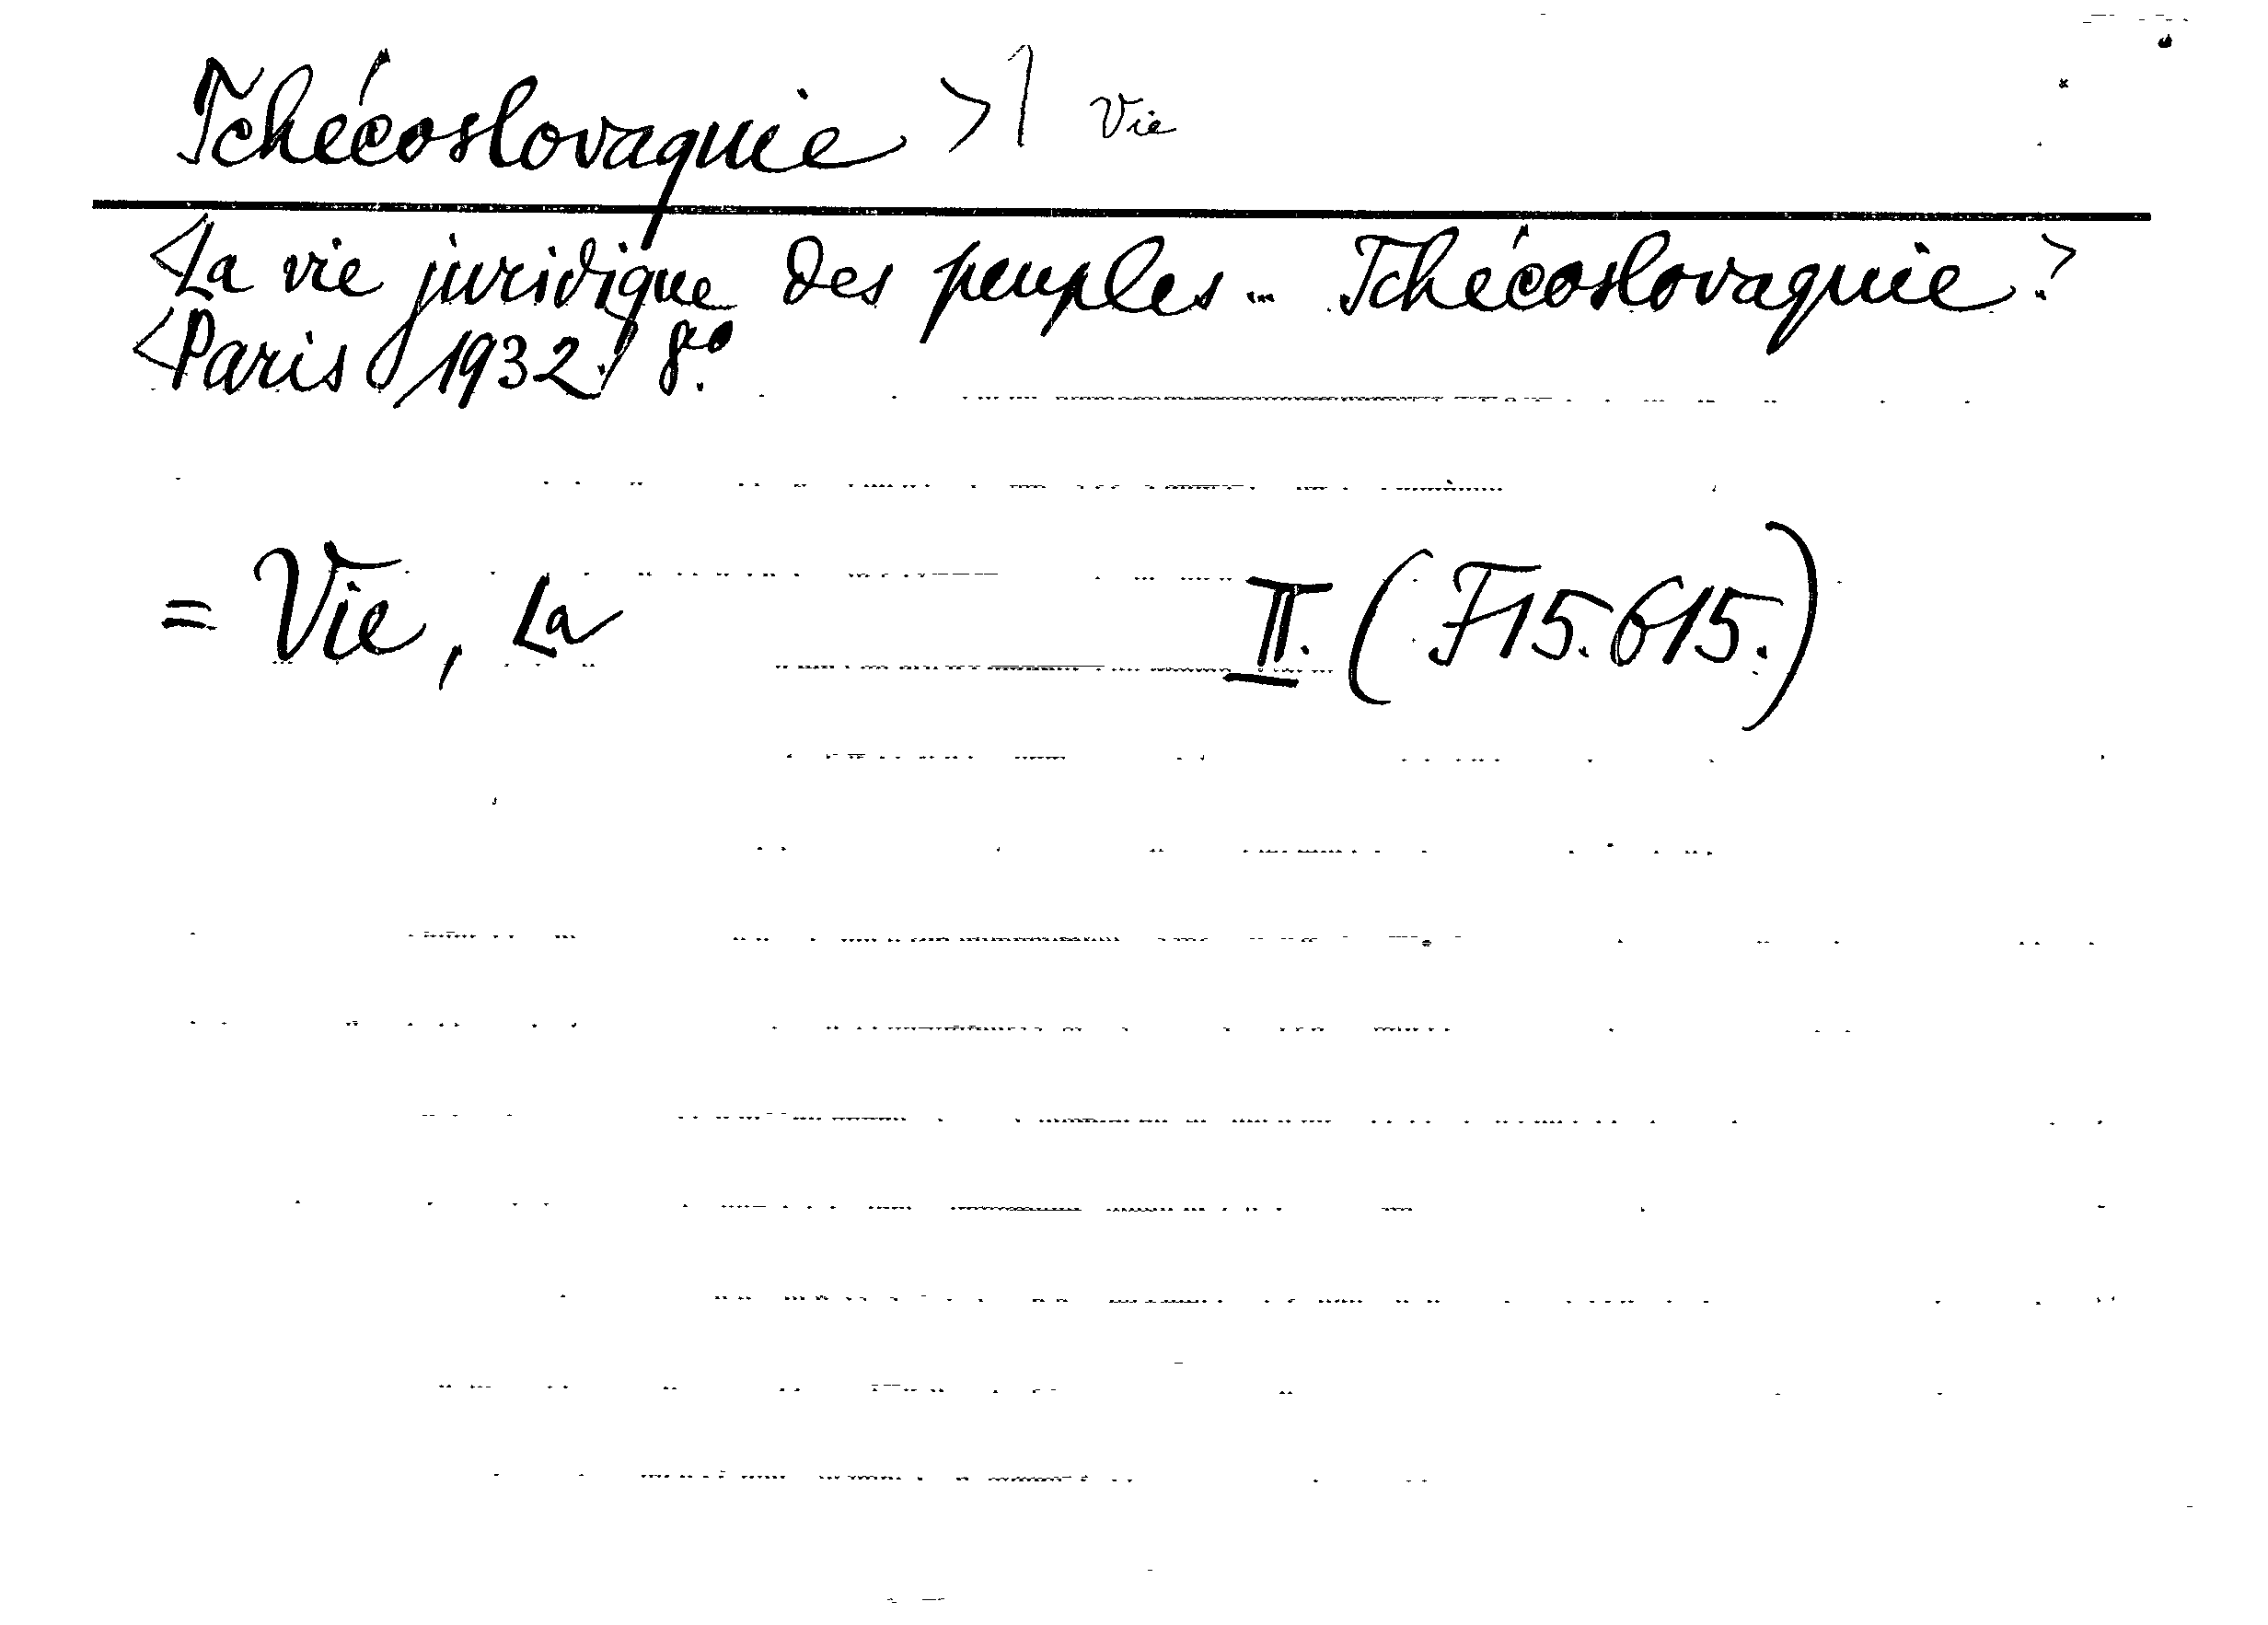 Tchécoslovaquie >1 Vie
<La vie juridique des peuples... Tchécoslovaquie.>
<Paris 1932.> 8°.
= Vie, La II. (F15.615.)